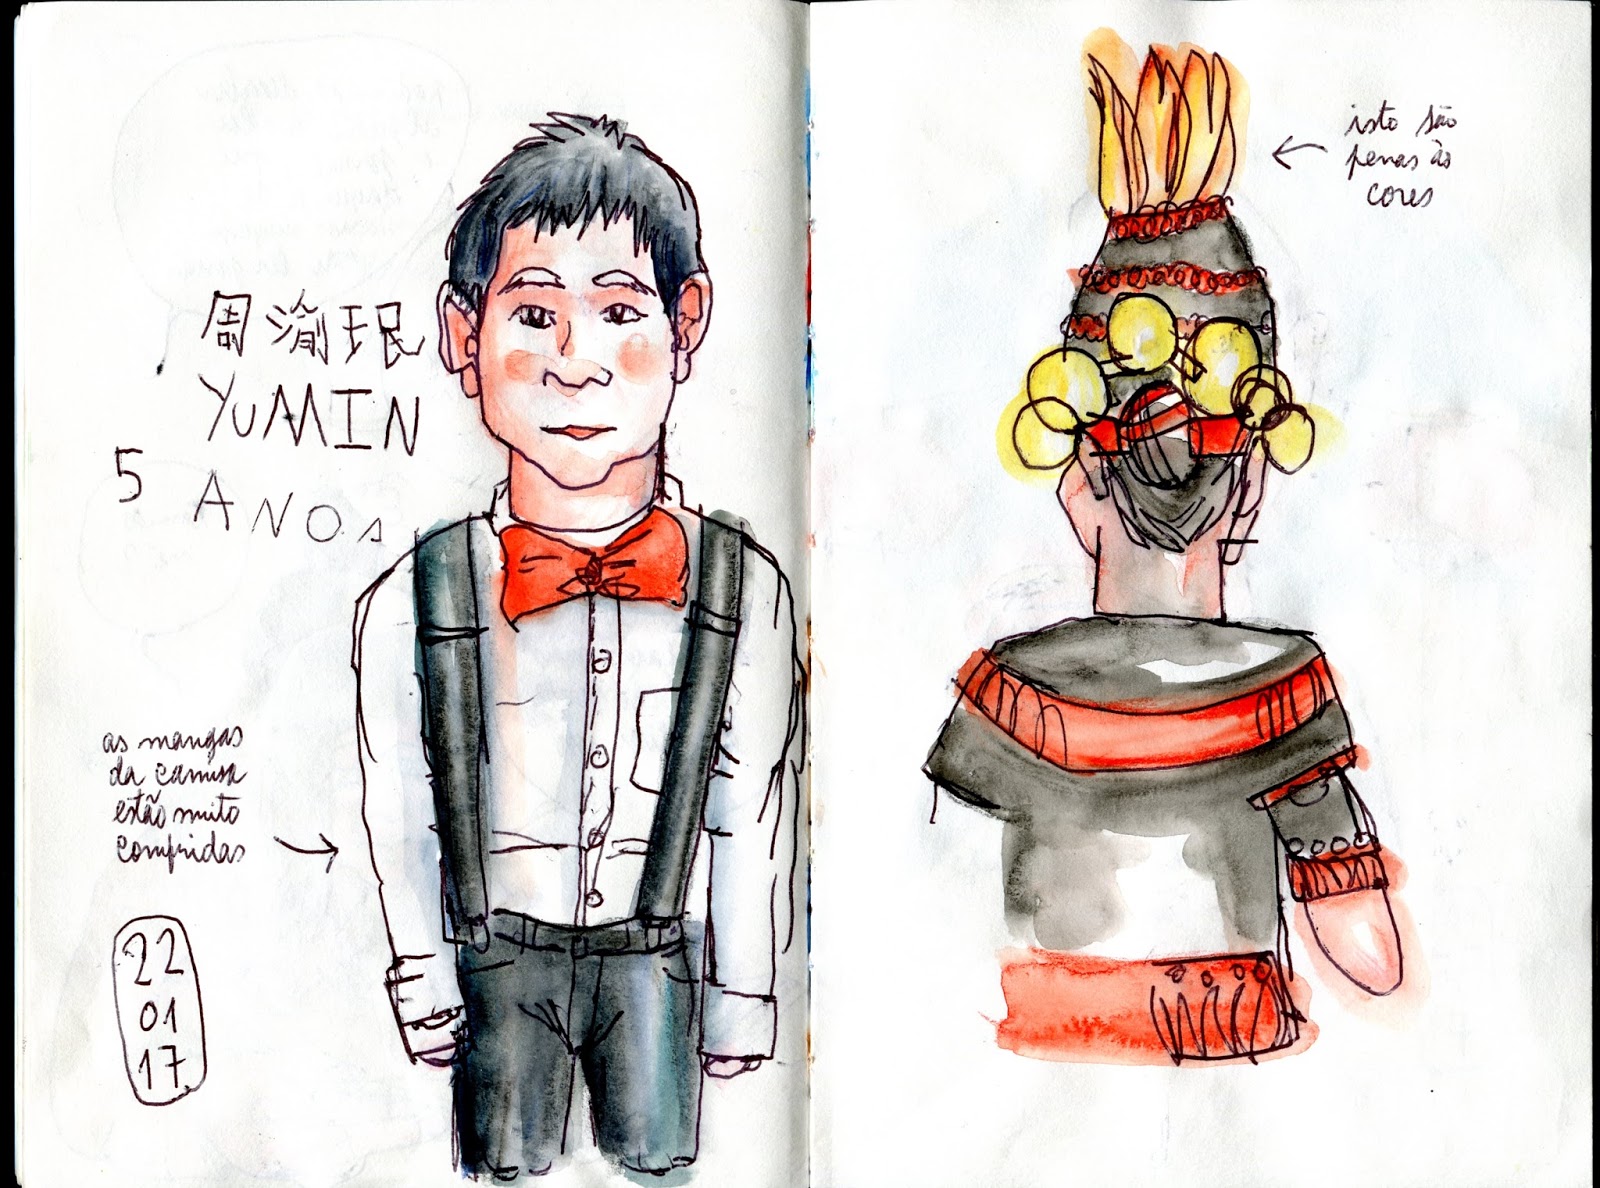 周渝珉
YUMIN
5 ANOS
as mangas
da camisa
estão muito
compridas
22
01
17
isto são
penas às
cores